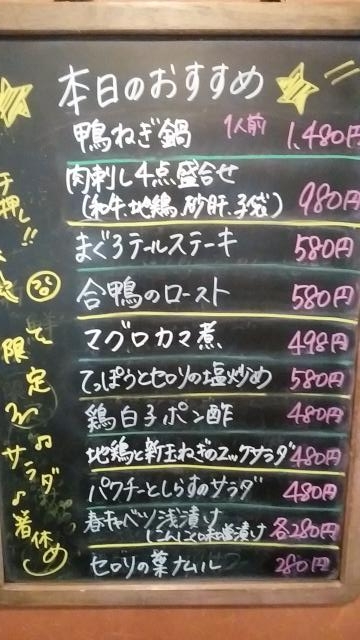 本日のおすすめ
鴨ねぎ鍋 1人前 1,480円
肉刺し4点盛合せ
(和牛、地鶏、砂肝、子袋) 980円
まぐろテールステーキ 580円
合鴨のロースト 580円
マグロカマ煮 498円
てっぽうとセロリの塩炒め 580円
鶏白子ポン酢 480円
地鶏と新玉ねぎのユッケサラダ 480円
パクチーとしらすのサラダ 480円
春キャベツ浅漬け
にんにく味噌漬け 各280円
セロリの葉ナムル 280円
押し!!
限定
サラダ
箸休め